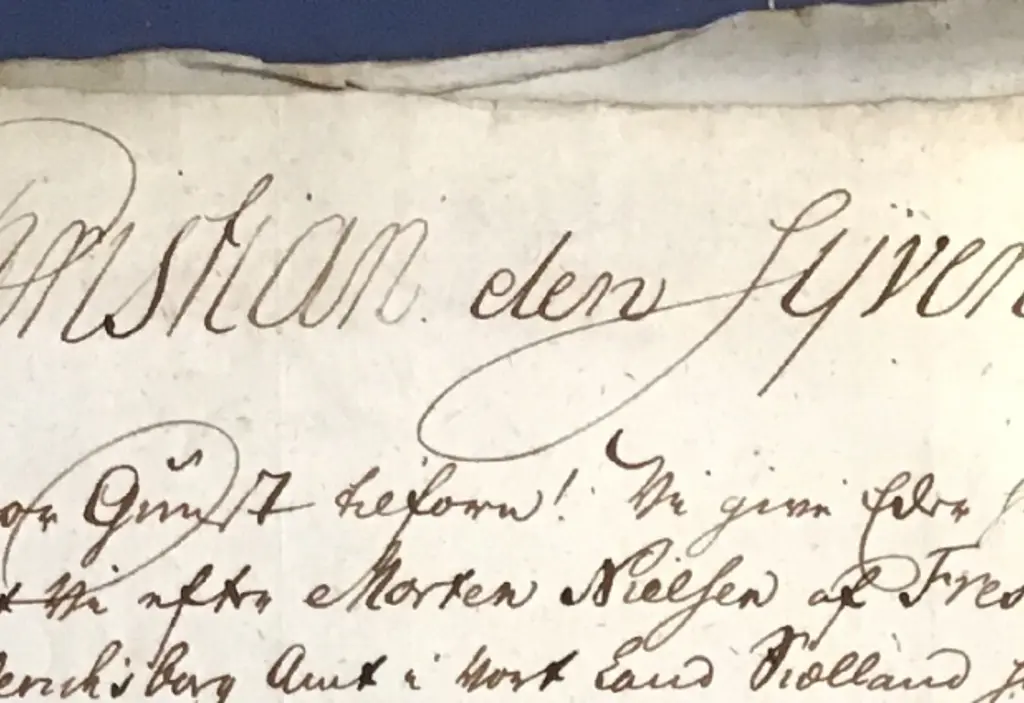 Christian den Syven
vor Gunst tilforn! Vi give Eder
at Vi efter Morten Nielsen af Fred
derichsborg Amt i Vort Land Siælland